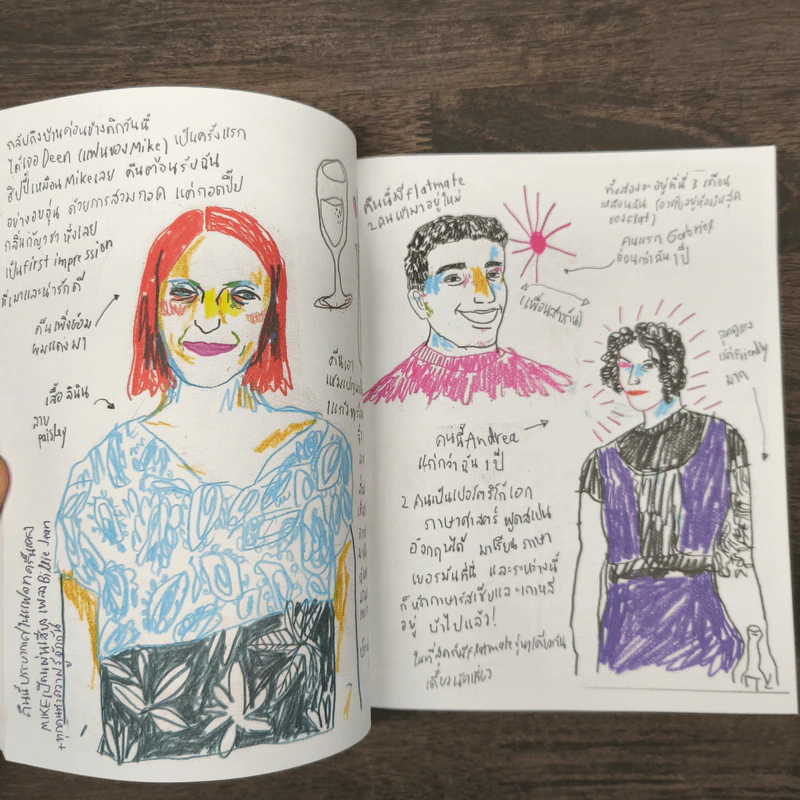 กลับถึงบ้านค่อนข้างดึกวันนี้
ได้เจอ Deen (แฟนของ Mike) เป็นครั้งแรก
ฮิปปี้เหมือน Mike เลย ดีนต้อนรับฉัน
อย่างอบอุ่น ด้วยการสวมกอด แต่กอดปั๊ป
กลิ่นกัญชา หึ่งเลย
เป็น first impression
ที่เมาและน่ารักดี
ดีนเพิ่งย้อม
ผมแดงมา
เสื้อลินิน
ลาย
paisley
MIKE เปิดแผ่นเสียง เพลง Billie Jean
ดีนเอา
คืนนี้มี flatmate
2 คนเข้ามาอยู่ใหม่
ทั้งสองจะอยู่ที่นี่ 3 เดือน
เหมือนฉัน
ของ flat)
คนแรก Gabriel
อ่อนกว่าฉัน 1 ปี
(เพื่อนสาวกัน)
ลุคดูแรง
แต่ friendly
มาก
คนนี้ Andrea
แก่กว่าฉัน 1 ปี
2 คนเป็นเปอโตริโก้ เอก
ภาษาศาสตร์ พูดสเปน
อังกฤษได้ มาเรียนภาษา
เยอรมันที่นี่ และระหว่างนี้
ก็หัดภาษารัสเซียและเกาหลี
อยู่ บ้าไปแล้ว!
ในที่สุดก็มี flatmate รุ่นๆเดียวกัน